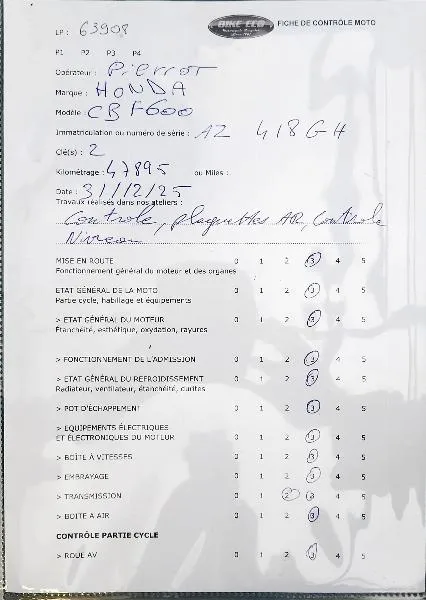 LP : 63908
BIKE ECO
FICHE DE CONTRÔLE MOTO
P1 P2 P3 P4
Opérateur : Pierrot
Marque : HONDA
Modèle : CBF600
Immatriculation ou numéro de série : AZ 418 GH
Clé(s) : 2
Kilométrage : 47895 ou Miles :
Date : 31/12/25
Travaux réalisés dans nos ateliers :
Controle, plaquettes AR, Controle
Niveau
MISE EN ROUTE 0 1 2 3 4 5
Fonctionnement général du moteur et des organes
ETAT GÉNÉRAL DE LA MOTO 0 1 2 3 4 5
Partie cycle, habillage et équipements
> ETAT GÉNÉRAL DU MOTEUR 0 1 2 3 4 5
Étanchéité, esthétique, oxydation, rayures
> FONCTIONNEMENT DE L'ADMISSION 0 1 2 3 4 5
> ETAT GÉNÉRAL DU REFROIDISSEMENT 0 1 2 3 4 5
Radiateur, ventilateur, étanchéité, durites
> POT D'ÉCHAPPEMENT 0 1 2 3 4 5
> EQUIPEMENTS ÉLECTRIQUES
ET ÉLECTRONIQUES DU MOTEUR 0 1 2 3 4 5
> BOÎTE À VITESSES 0 1 2 3 4 5
> EMBRAYAGE 0 1 2 3 4 5
> TRANSMISSION 0 1 2 3 4 5
> BOITE A AIR 0 1 2 3 4 5
CONTRÔLE PARTIE CYCLE
> ROUE AV 0 1 2 3 4 5